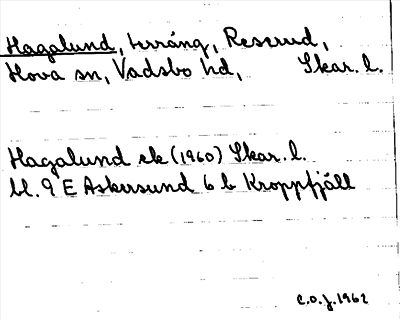 Hagalund, terräng, Reserud,
Hova sn, Vadsbo hd, Skar. l.
Hagalund ek (1960) Skar. l.
bl. 9 E Askersund 6 b Kroppfjäll
C.O.J. 1962